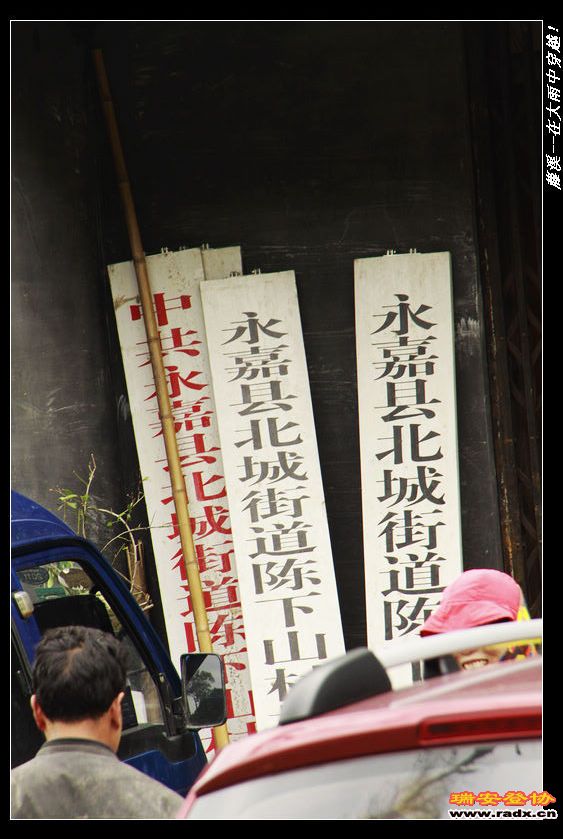 藤溪--在大雨中穿越!
中共永嘉县北城街道陈下山村
永嘉县北城街道陈下山村
永嘉县北城街道陈
瑞安登协
www.radx.cn